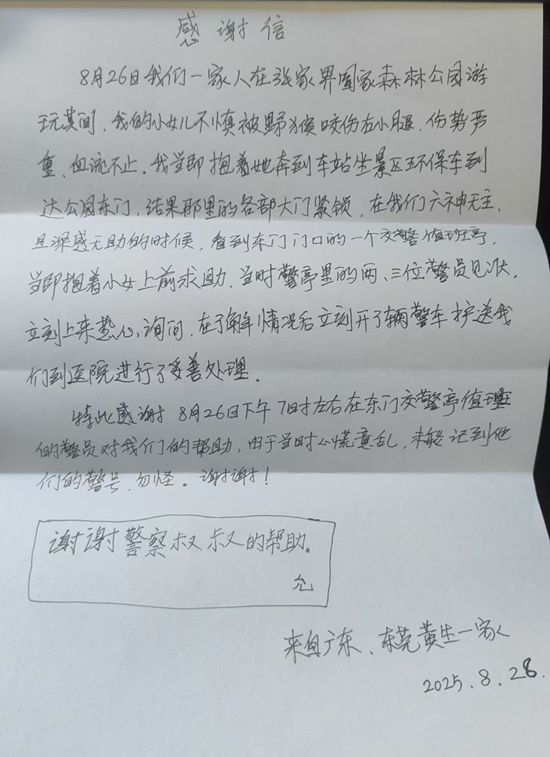 感谢信
8月26日我们一家人在张家界国家森林公园游
玩其间，我的小女儿不慎被野猴咬伤左小腿，伤势严
重、血流不止。我当即抱着她奔到车站坐景区环保车到
达公园东门，结果那里的各部大门紧锁，在我们六神无主、
且深感无助的时候，看到东门门口的一个交警值班亭，
当即抱着小女上前求助，当时警亭里的两、三位警员见状，
立刻上来热心询问，在了解情况后立刻开了辆警车护送我
们到医院进行了妥善处理。
特此感谢 8月26日下午7时左右在东门交警亭值理
的警员对我们的帮助，由于当时心慌意乱，未能记到他
们的警号，勿怪。谢谢！
谢谢警察叔叔的帮助。
允
来自广东、东莞黄生一家人
2025.8.28.